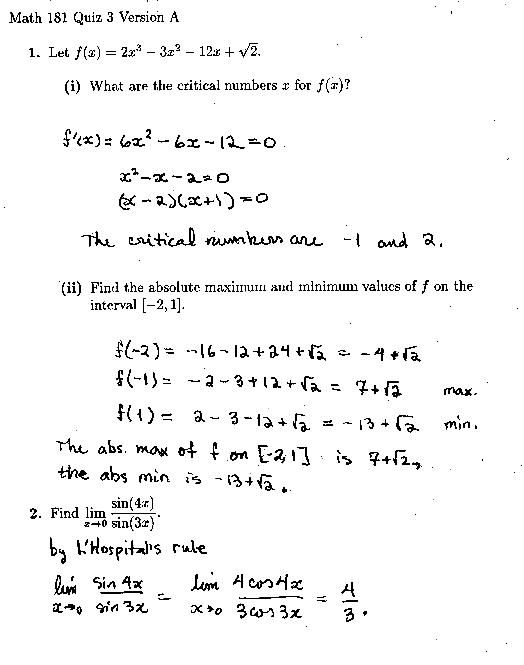 Math 181 Quiz 3 Version A
1. Let f(x) = 2x³ − 3x² − 12x + √2.
(i) What are the critical numbers x for f(x)?
f'(x) = 6x² − 6x − 12 = 0.
x² − x − 2 = 0
(x − 2)(x + 1) = 0
The critical numbers are −1 and 2.
(ii) Find the absolute maximum and minimum values of f on the
interval [−2, 1].
f(−2) = −16 − 12 + 24 + √2 = −4 + √2
f(−1) = −2 − 3 + 12 + √2 = 7 + √2 max.
f(1) = 2 − 3 − 12 + √2 = −13 + √2 min.
The abs. max of f on [−2, 1] is 7 + √2,
the abs min is −13 + √2.
2. Find lim x→0 sin(4x)/sin(3x).
by L'Hospital's rule
lim x→0 sin 4x / sin 3x = lim x→0 4 cos 4x / 3 cos 3x = 4/3.